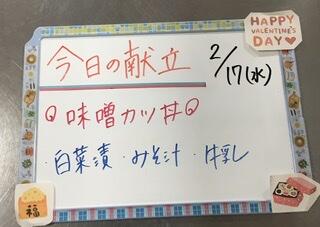 HAPPY
VALENTINE'S
DAY♡
今日の献立
2/17(水)
味噌カツ丼
・白菜漬・みそ汁・牛乳
福